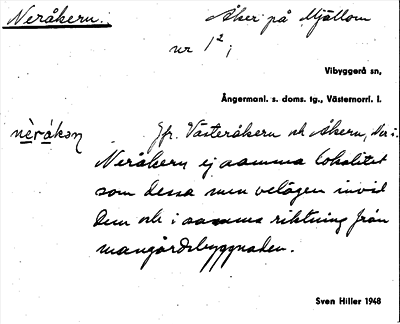 Neråkern.
Åker på Mjällom
nr 1²;
Vibyggerå sn,
Ångermanl. s. doms. tg., Västernorrl. l.
nèrákən Jfr. Västeråkern och Åkern, där i.
Neråkern ej samma lokalitet
som dessa men belägen invid
dem och i samma riktning från
mangårdsbyggnaden.
Sven Hiller 1948